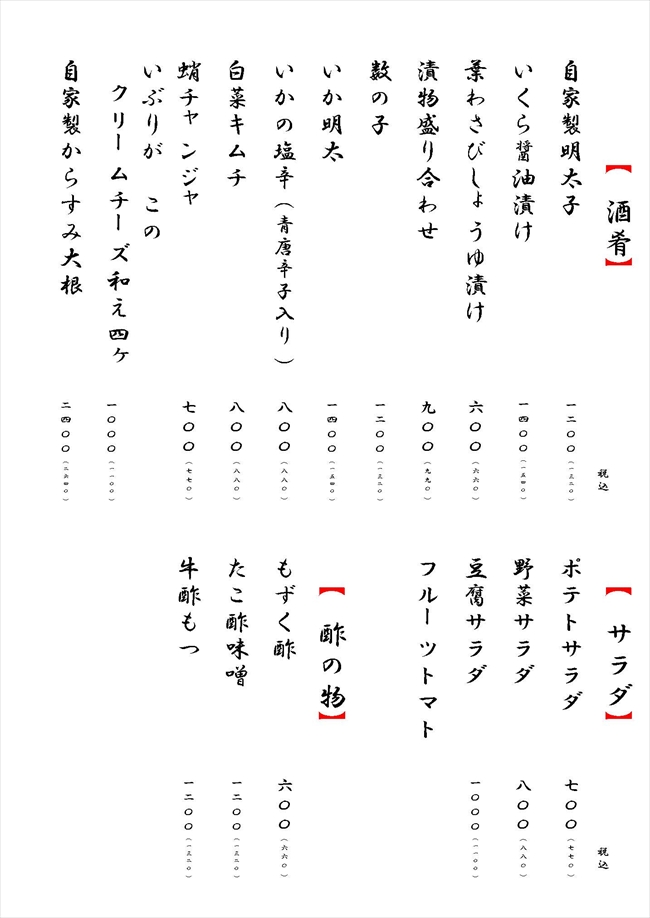 【酒肴】
税込
自家製明太子 一二〇〇（一三二〇）
いくら醤油漬け 一四〇〇（一五四〇）
葉わさびしょうゆ漬け 六〇〇（六六〇）
漬物盛り合わせ 九〇〇（九九〇）
数の子 一二〇〇（一三二〇）
いか明太 一四〇〇（一五四〇）
いかの塩辛（青唐辛子入り） 八〇〇（八八〇）
白菜キムチ 八〇〇（八八〇）
蛸チャンジャ 七〇〇（七七〇）
いぶりが この
クリームチーズ和え四ケ 一〇〇〇（一一〇〇）
自家製からすみ大根 二四〇〇（二六四〇）
【サラダ】
税込
ポテトサラダ 七〇〇（七七〇）
野菜サラダ 八〇〇（八八〇）
豆腐サラダ 一〇〇〇（一一〇〇）
フルーツトマト
【酢の物】
もずく酢 六〇〇（六六〇）
たこ酢味噌 一二〇〇（一三二〇）
牛酢もつ 一二〇〇（一三二〇）